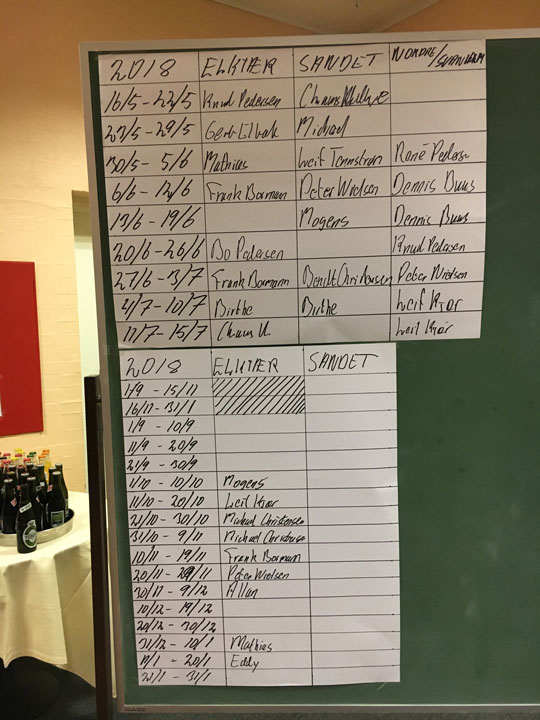 2018 ELKIÆR SANDET NORDRE/
16/5 - 22/5 Knud Pedersen Claus
23/5 - 29/5 Gert Michael
30/5 - 5/6 Mathias Leif René Pedersen
6/6 - 12/6 Frank Bormann Peter Nielsen Dennis Buus
13/6 - 19/6 Mogens Dennis Buus
20/6 - 26/6 Bo Pedersen Knud Pedersen
27/6 - 3/7 Frank Bormann Bendt Christensen Peter Nielsen
4/7 - 10/7 Birthe Birthe Leif Kjær
11/7 - 15/7 Claus K. Leif Kjær
2018 ELKIÆR SANDET
1/9 - 15/11
16/11 - 31/1
1/9 - 10/9
11/9 - 20/9
21/9 - 30/9
1/10 - 10/10 Mogens
11/10 - 20/10 Leif Kjær
21/10 - 30/10 Michael Christensen
31/10 - 9/11 Michael Christensen
10/11 - 19/11 Frank Bormann
20/11 - 29/11 Peter Nielsen
30/11 - 9/12 Allan
10/12 - 19/12
20/12 - 30/12
31/12 - 10/1 Mathias
11/1 - 20/1 Eddy
21/1 - 31/1